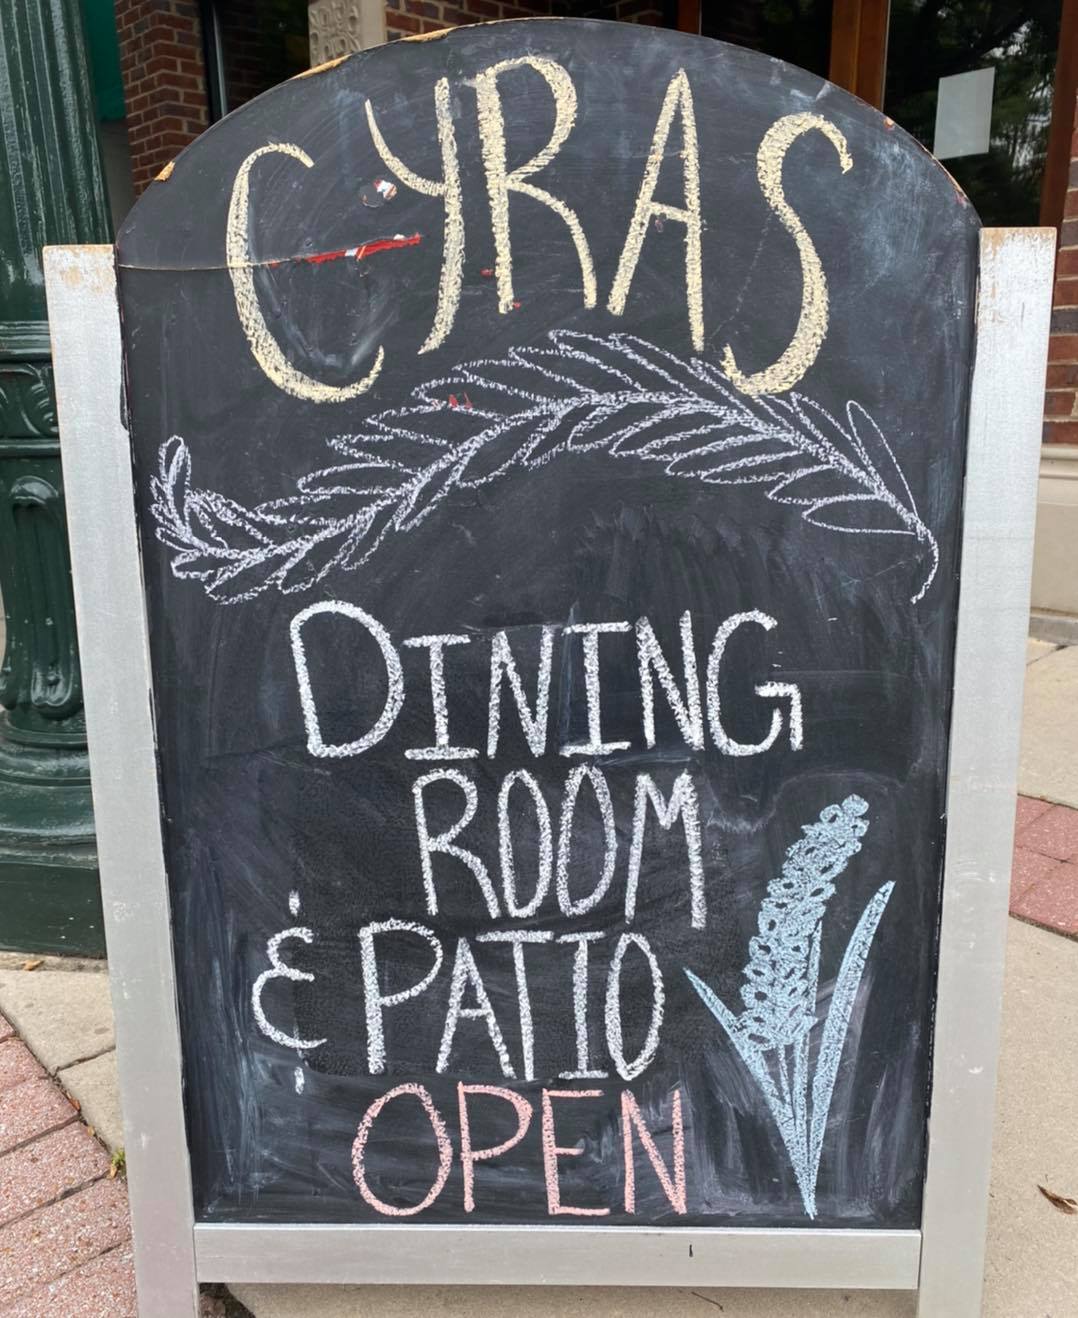 CYRAS
DINING
ROOM
& PATIO
OPEN